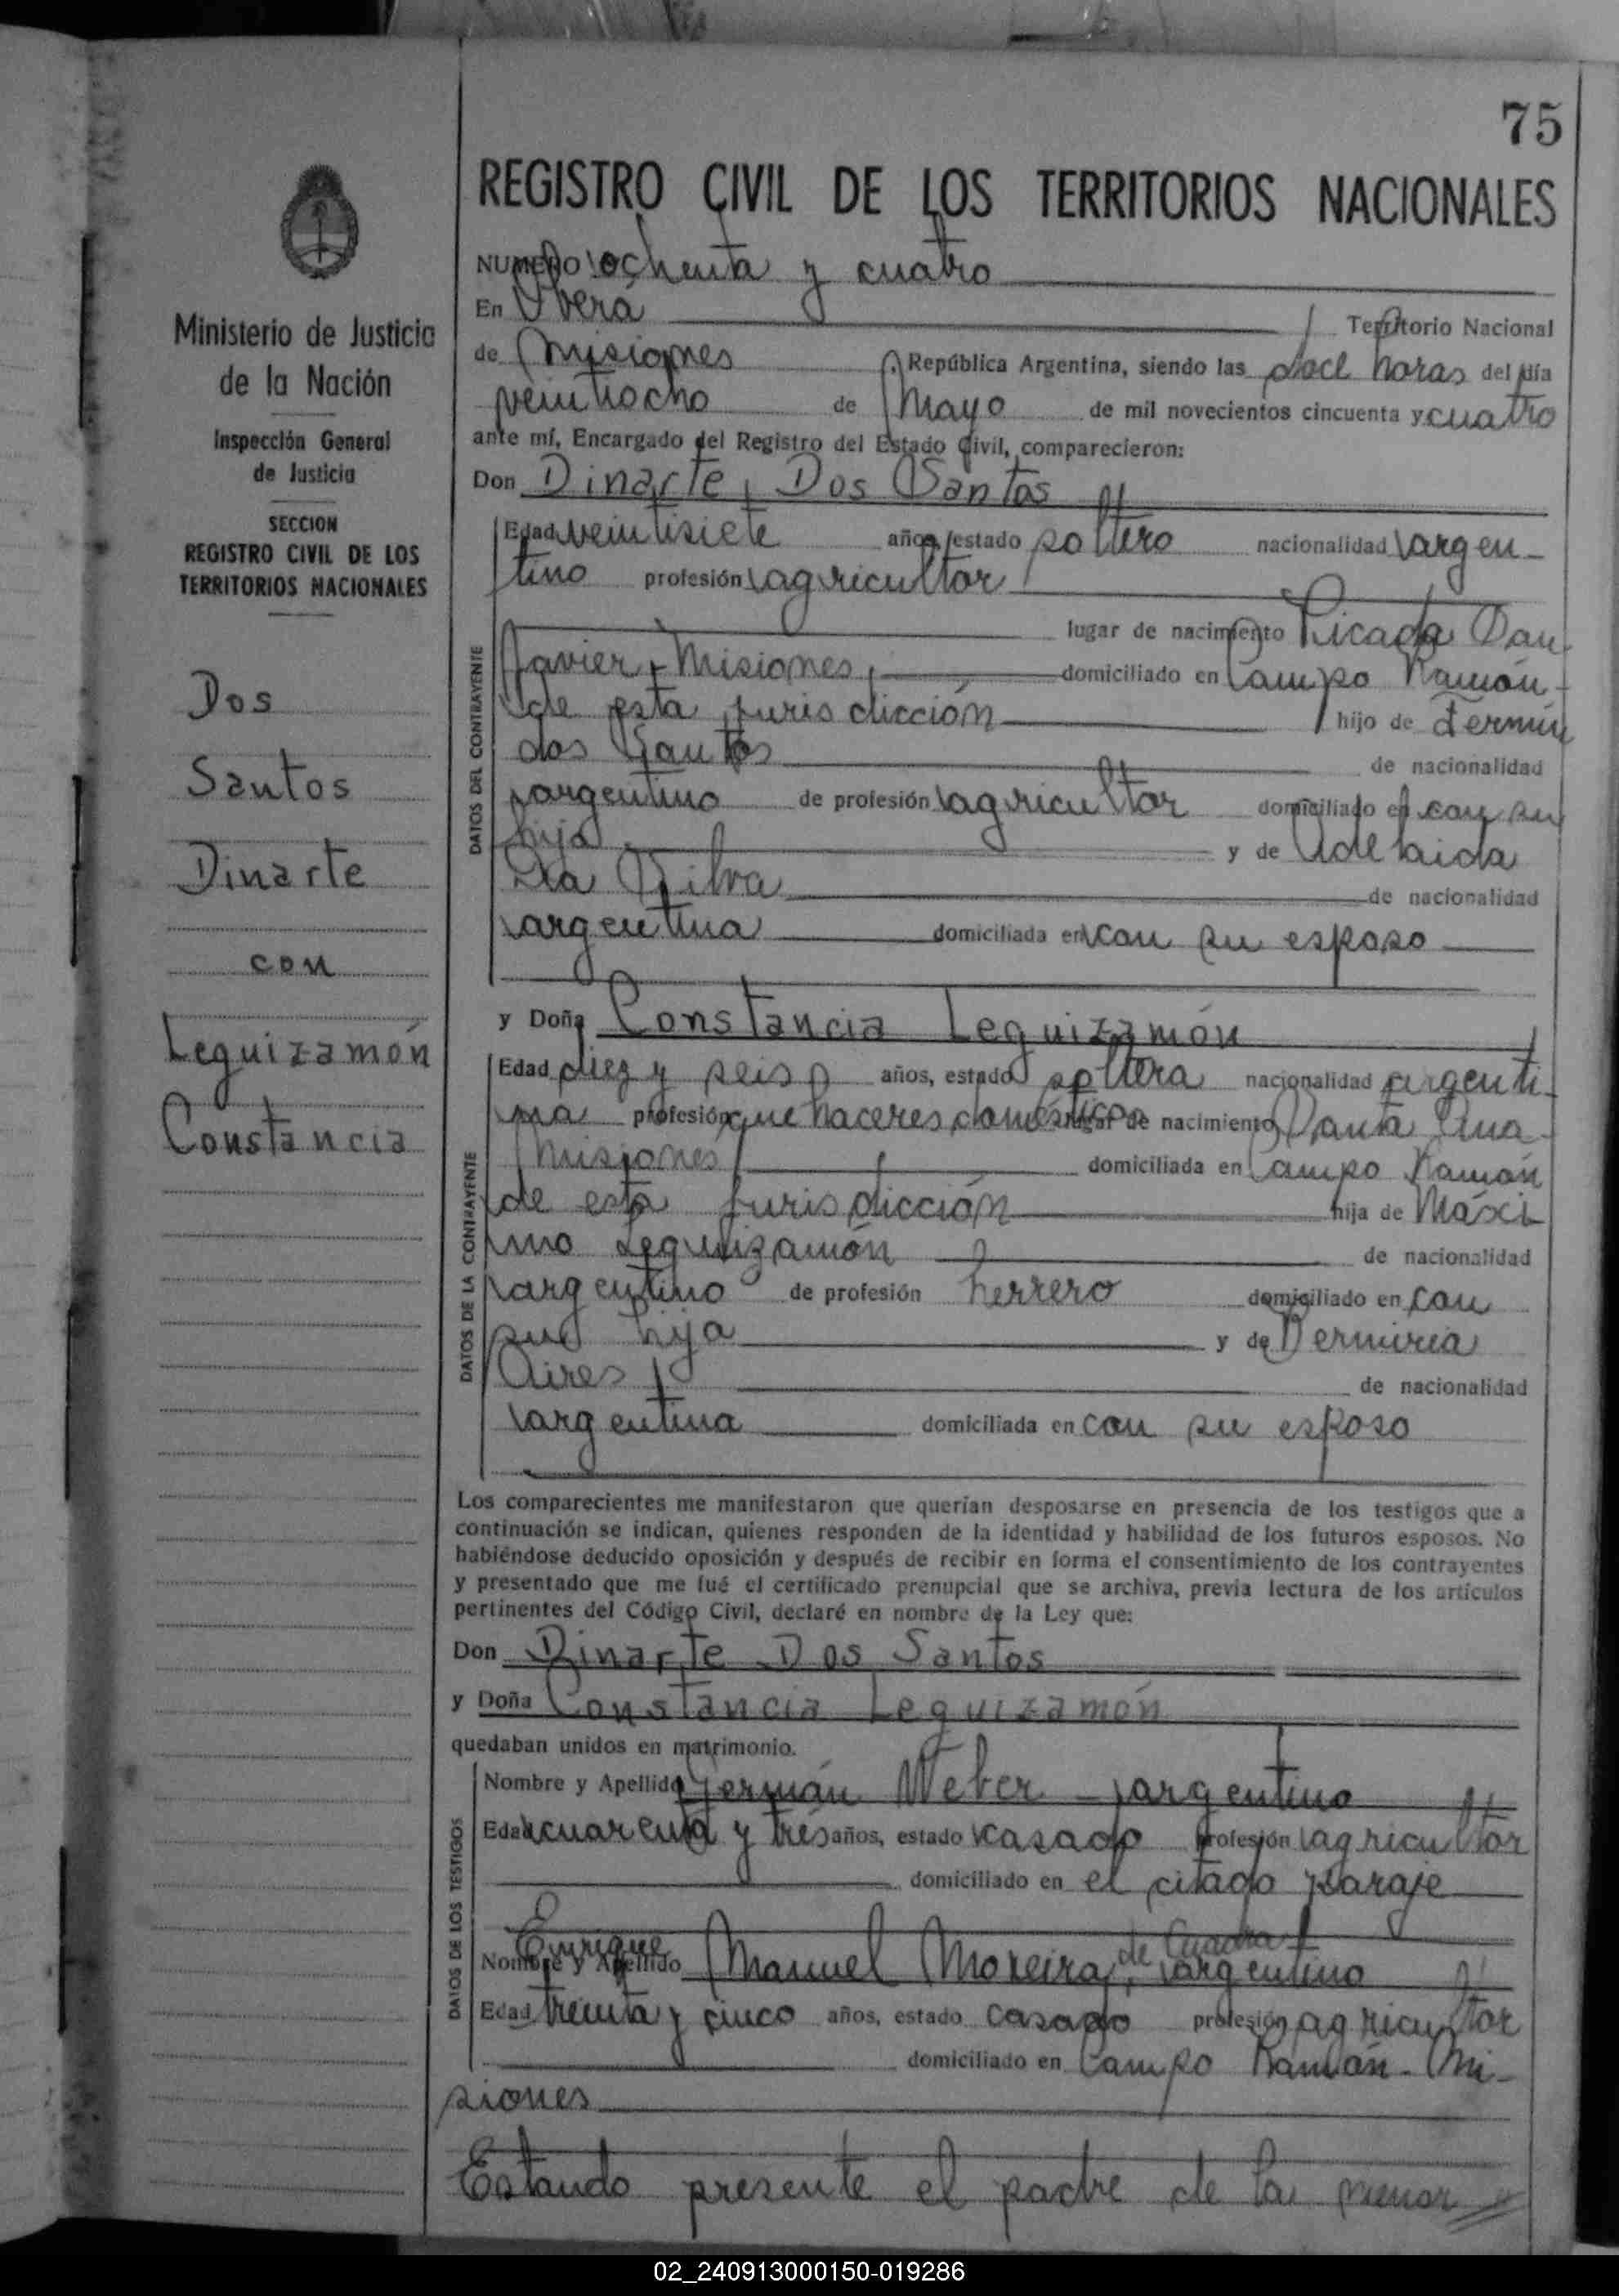 75
REGISTRO CIVIL DE LOS TERRITORIOS NACIONALES
NUMERO ochenta y cuatro
En Oberá Territorio Nacional
de Misiones, República Argentina, siendo las doce horas del día
veintiocho de Mayo de mil novecientos cincuenta y cuatro
ante mí, Encargado del Registro del Estado Civil, comparecieron:
Don Dinarte, Dos Santos
DATOS DEL CONTRAYENTE
Edad veintisiete años, estado soltero nacionalidad argen-
tino profesión agricultor
lugar de nacimiento Picada San
Javier, Misiones, domiciliado en Campo Ramón-
de esta jurisdicción hijo de Fermín
dos Santos de nacionalidad
argentino de profesión agricultor domiciliado en con su
hijo y de Adelaida
Da Silva de nacionalidad
argentina domiciliada en con su esposo
y Doña Constancia Leguizamón
DATOS DE LA CONTRAYENTE
Edad diez y seis años, estado soltera nacionalidad argenti-
na profesión que haceres domésticos lugar de nacimiento Santa Ana-
Misiones domiciliada en Campo Ramón
de esta jurisdicción hija de Máxi-
mo Leguizamón de nacionalidad
argentino de profesión herrero domiciliado en con
su hija y de
Aires de nacionalidad
argentina domiciliada en con su esposo
Los comparecientes me manifestaron que querían desposarse en presencia de los testigos que a
continuación se indican, quienes responden de la identidad y habilidad de los futuros esposos. No
habiéndose deducido oposición y después de recibir en forma el consentimiento de los contrayentes
y presentado que me fué el certificado prenupcial que se archiva, previa lectura de los artículos
pertinentes del Código Civil, declaré en nombre de la Ley que:
Don Dinarte Dos Santos
y Doña Constancia Leguizamón
quedaban unidos en matrimonio.
DATOS DE LOS TESTIGOS
Nombre y Apellido Germán Weber - argentino
Edad cuarenta y tres años, estado casado profesión agricultor
domiciliado en el citado paraje
Enrique de Cuadra
Nombre y Apellido Manuel Moreira, argentino
Edad treinta y cinco años, estado casado profesión agricultor
domiciliado en Campo Ramón - Mi-
siones
Estando presente el padre de la menor
Ministerio de Justicia
de la Nación
Inspección General
de Justicia
SECCION
REGISTRO CIVIL DE LOS
TERRITORIOS NACIONALES
Dos
Santos
Dinarte
con
Leguizamón
Constancia
02_240913000150-019286